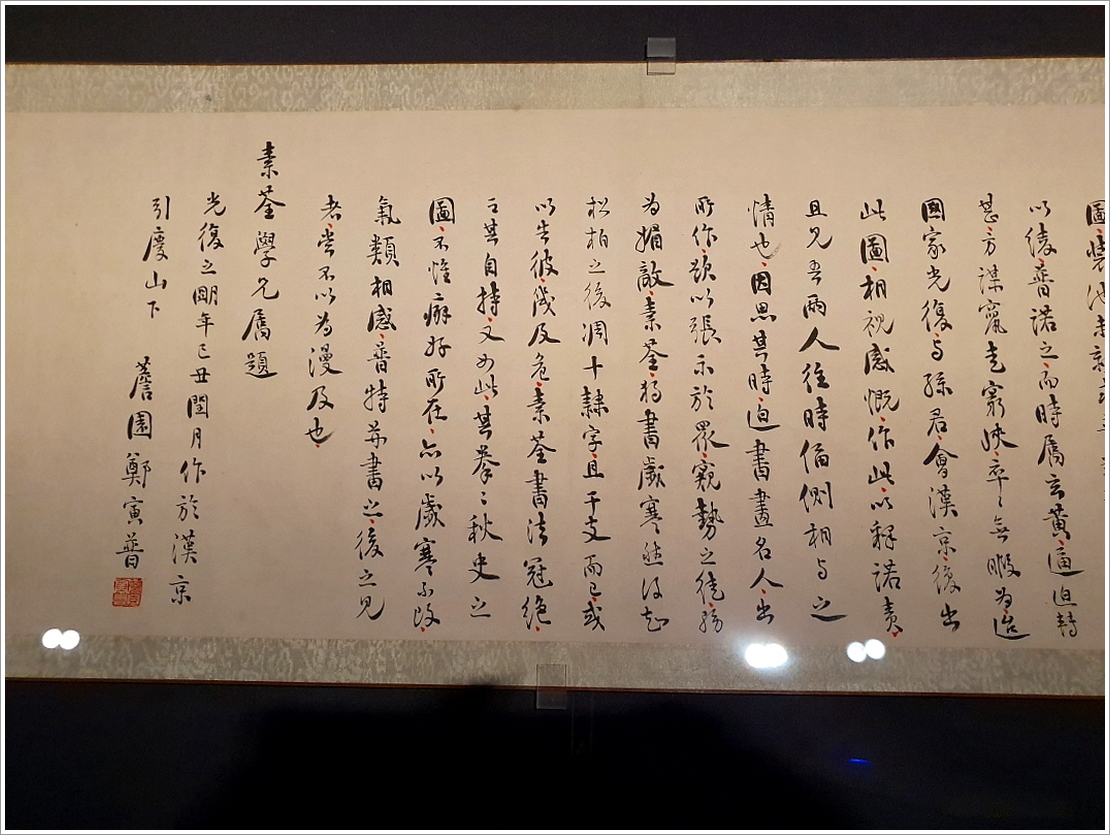 圖
以普諾之而時屬玄黃逼迫轉
甚方謀竄走窮峽卒〻無暇為迨
國家光復与孫君會漢京復出
此圖相視感慨作此以釋諾責
且見吾兩人往時偪側相与之
情也因思其時迫書畫名人出
所作欲以張示於眾窺勢之徒務
為媚敵素荃獨書歲寒然後知
松柏之後凋十隷字且干支而已或
以告彼淺及危素荃書法冠絶
云其自持又如此其拳〻秋史之
圖不惟癖好所在亦以歲寒不改
氣類相感普特并書之後之見
者當不以為漫及也
素荃學兄屬題
光復之朙年己丑閏月作於漢京
引慶山下 薝園鄭寅普